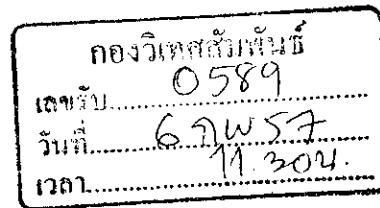 กองวิเทศสัมพันธ์
เลขรับ 0589
วันที่ 6 กพ 57
เวลา 11.30น.